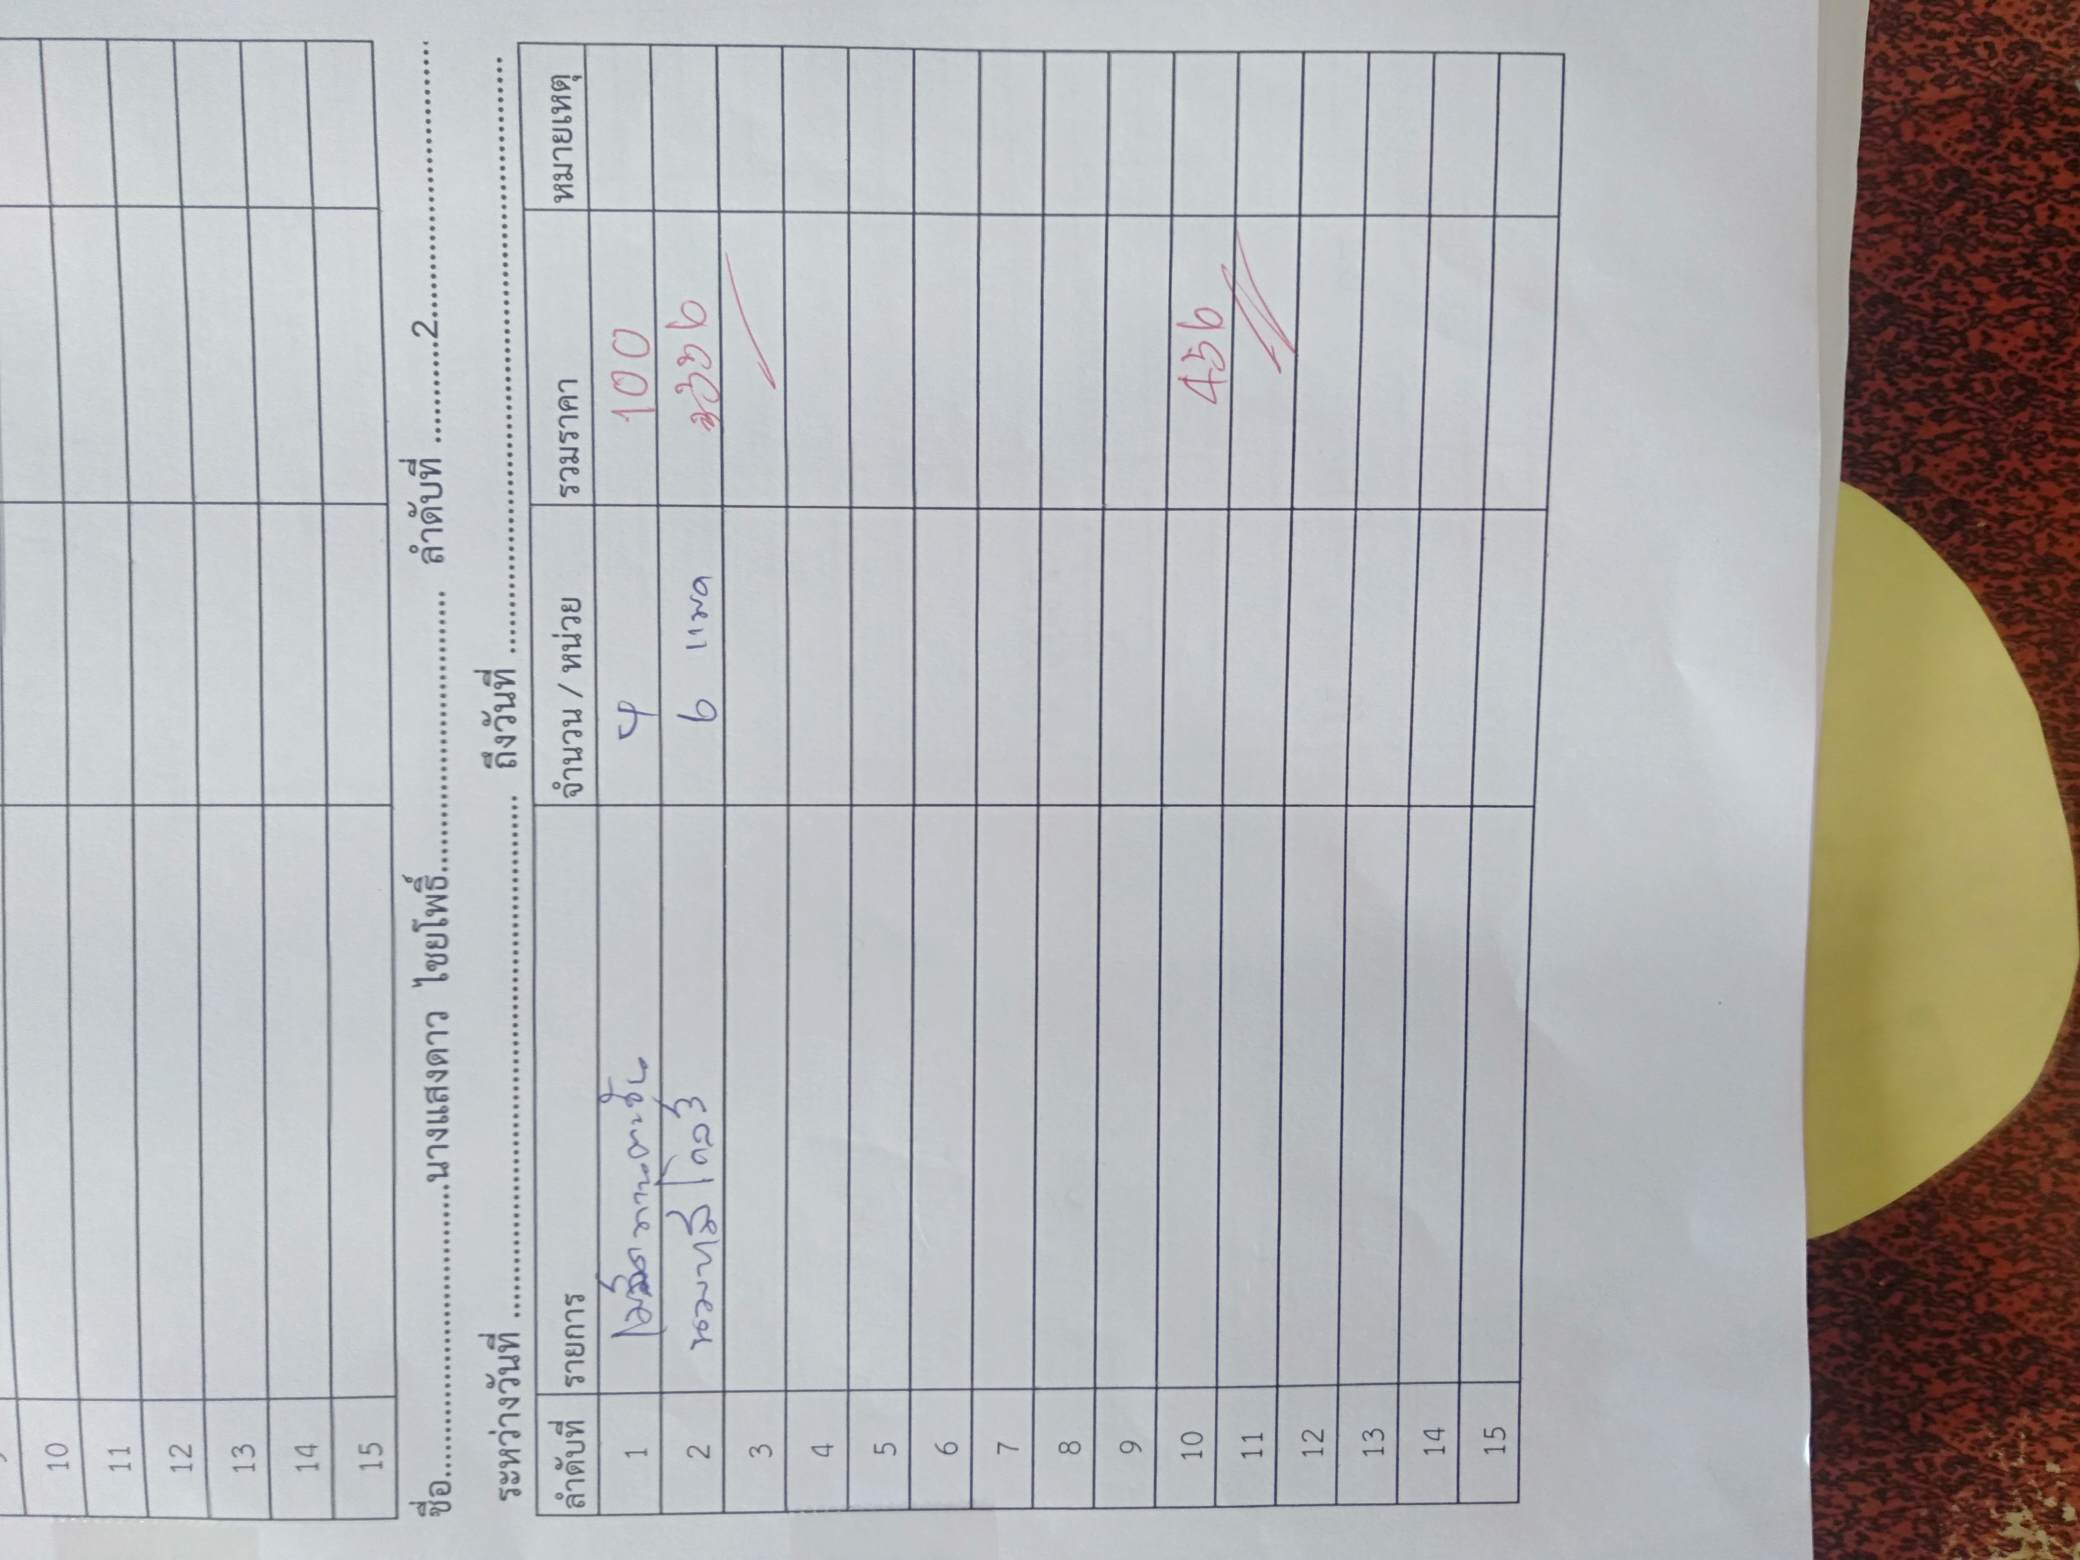 10
11
12
13
14
15
ชื่อ..............................นางแสงดาว ไชยโพธิ์.............................. ลำดับที่ ..........2..............................
ระหว่างวันที่ ............................................................ ถึงวันที่ ............................................................
ลำดับที่ รายการ จำนวน / หน่วย รวมราคา หมายเหตุ
1 4 100
2 6 แพค
3
4
5
6
7
8
9
10 456
11
12
13
14
15